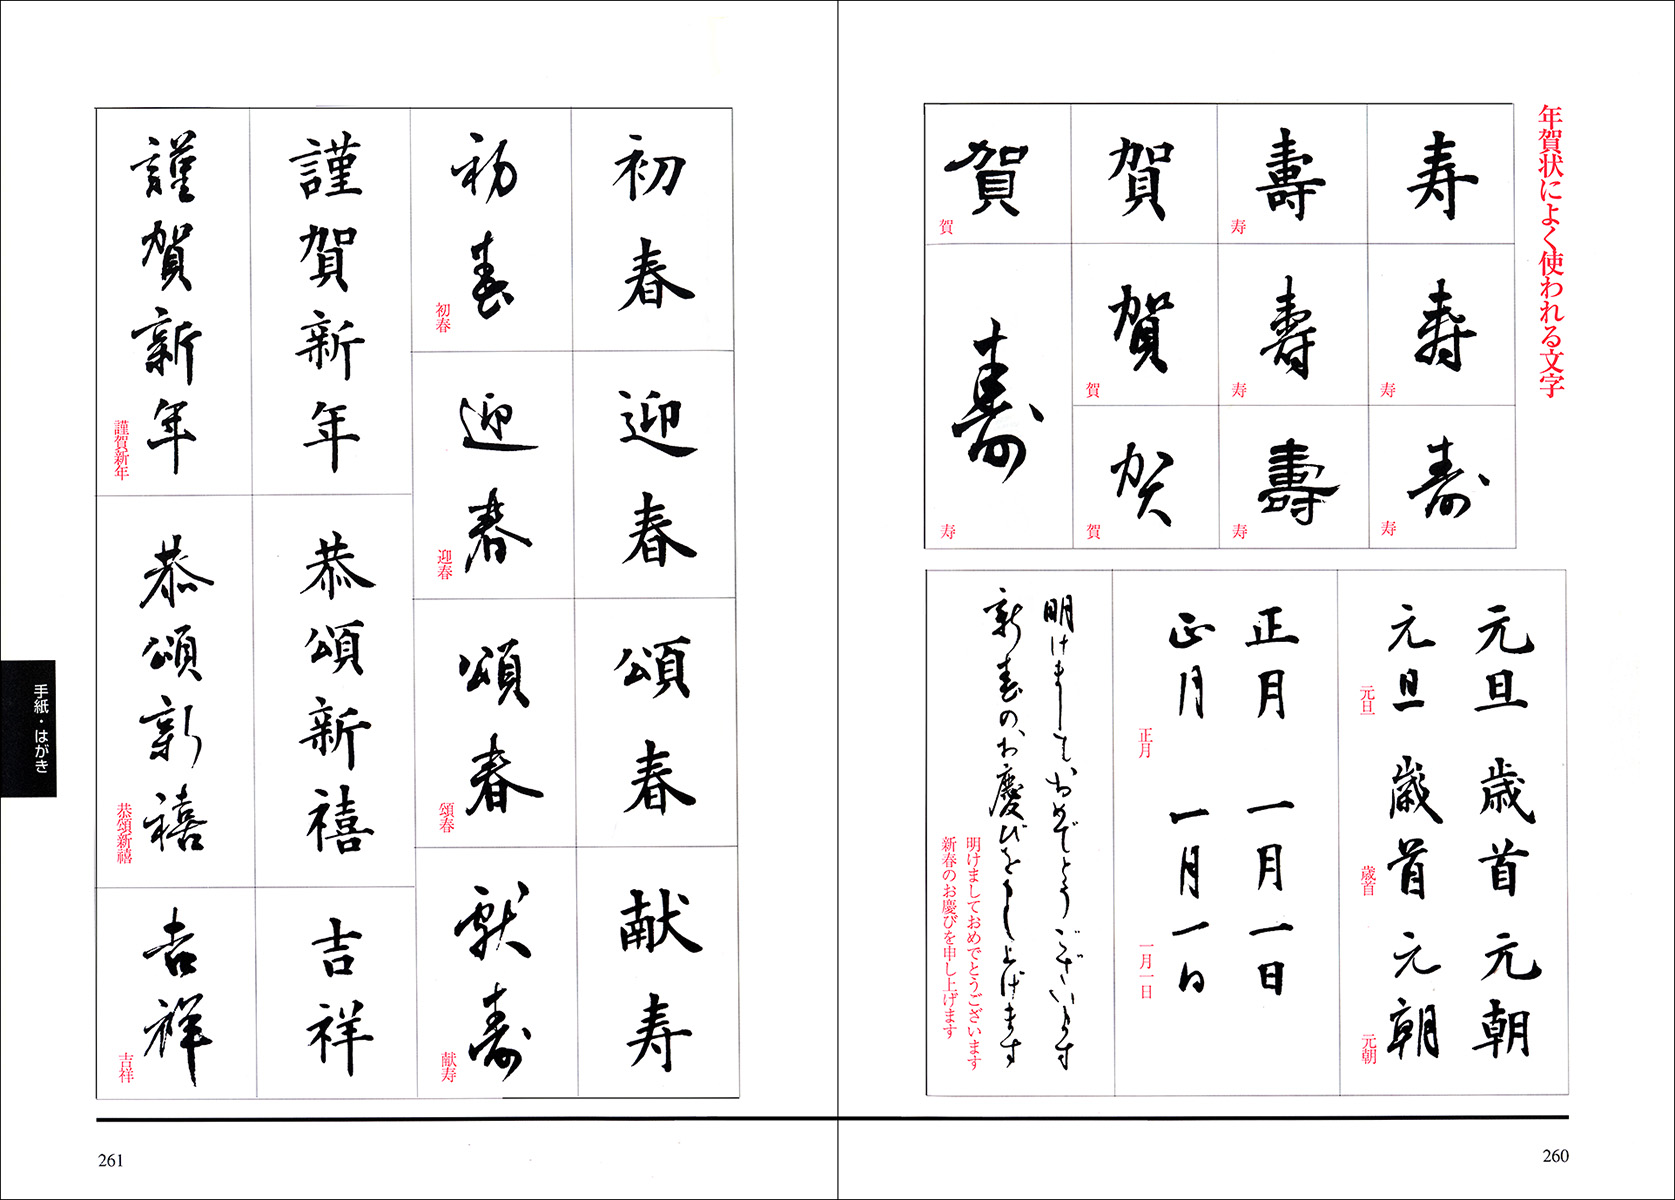 年賀状によく使われる文字
寿
寿
寿
寿
寿
壽
寿
壽
寿
壽
寿
賀
賀
賀
賀
賀
賀
賀
寿
寿
元旦 歳首 元朝
元旦 歳首 元朝
元旦 歳首 元朝
正月 一月一日
正月 一月一日
正月 一月一日
明けましておめでとうございます
新春のお慶びを申し上げます
明けましておめでとうございます
新春のお慶びを申し上げます
260
初春
初春
初春
迎春
迎春
迎春
頌春
頌春
頌春
献寿
献寿
献寿
謹賀新年
謹賀新年
謹賀新年
恭頌新禧
恭頌新禧
恭頌新禧
吉祥
吉祥
吉祥
手紙・はがき
261